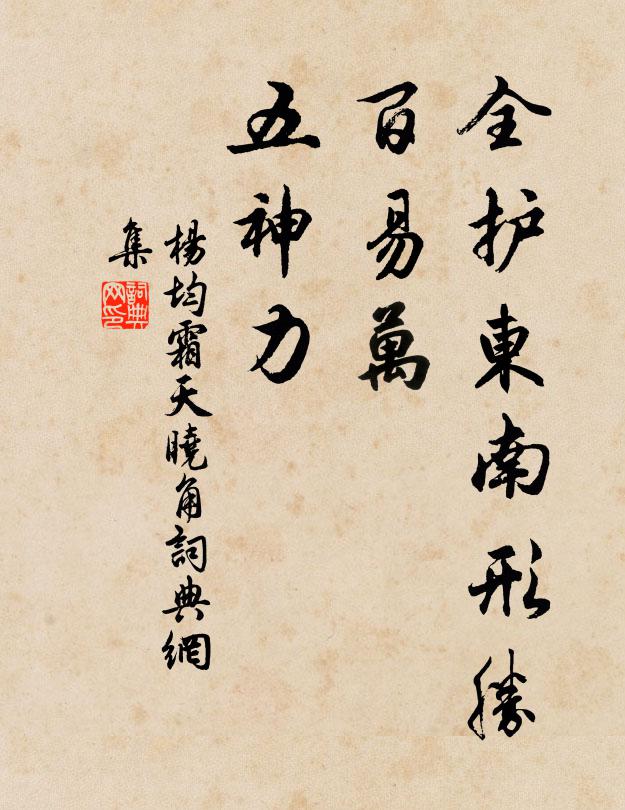 全护東南形勝
百易萬
五神力
楊均霜天曉角詞典網
集
詞典
网印